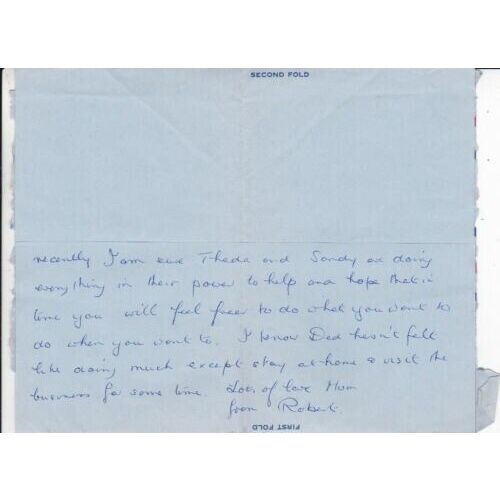 SECOND FOLD
recently I am sure Theda and Sandy are doing
everything in their power to help and hope that in
time you will feel freer to do what you want to
do when you want to. I know Dad hasn't felt
like doing much except stay at home & visit the
business for some time. Lots of love Mum
from Robert.
FIRST FOLD